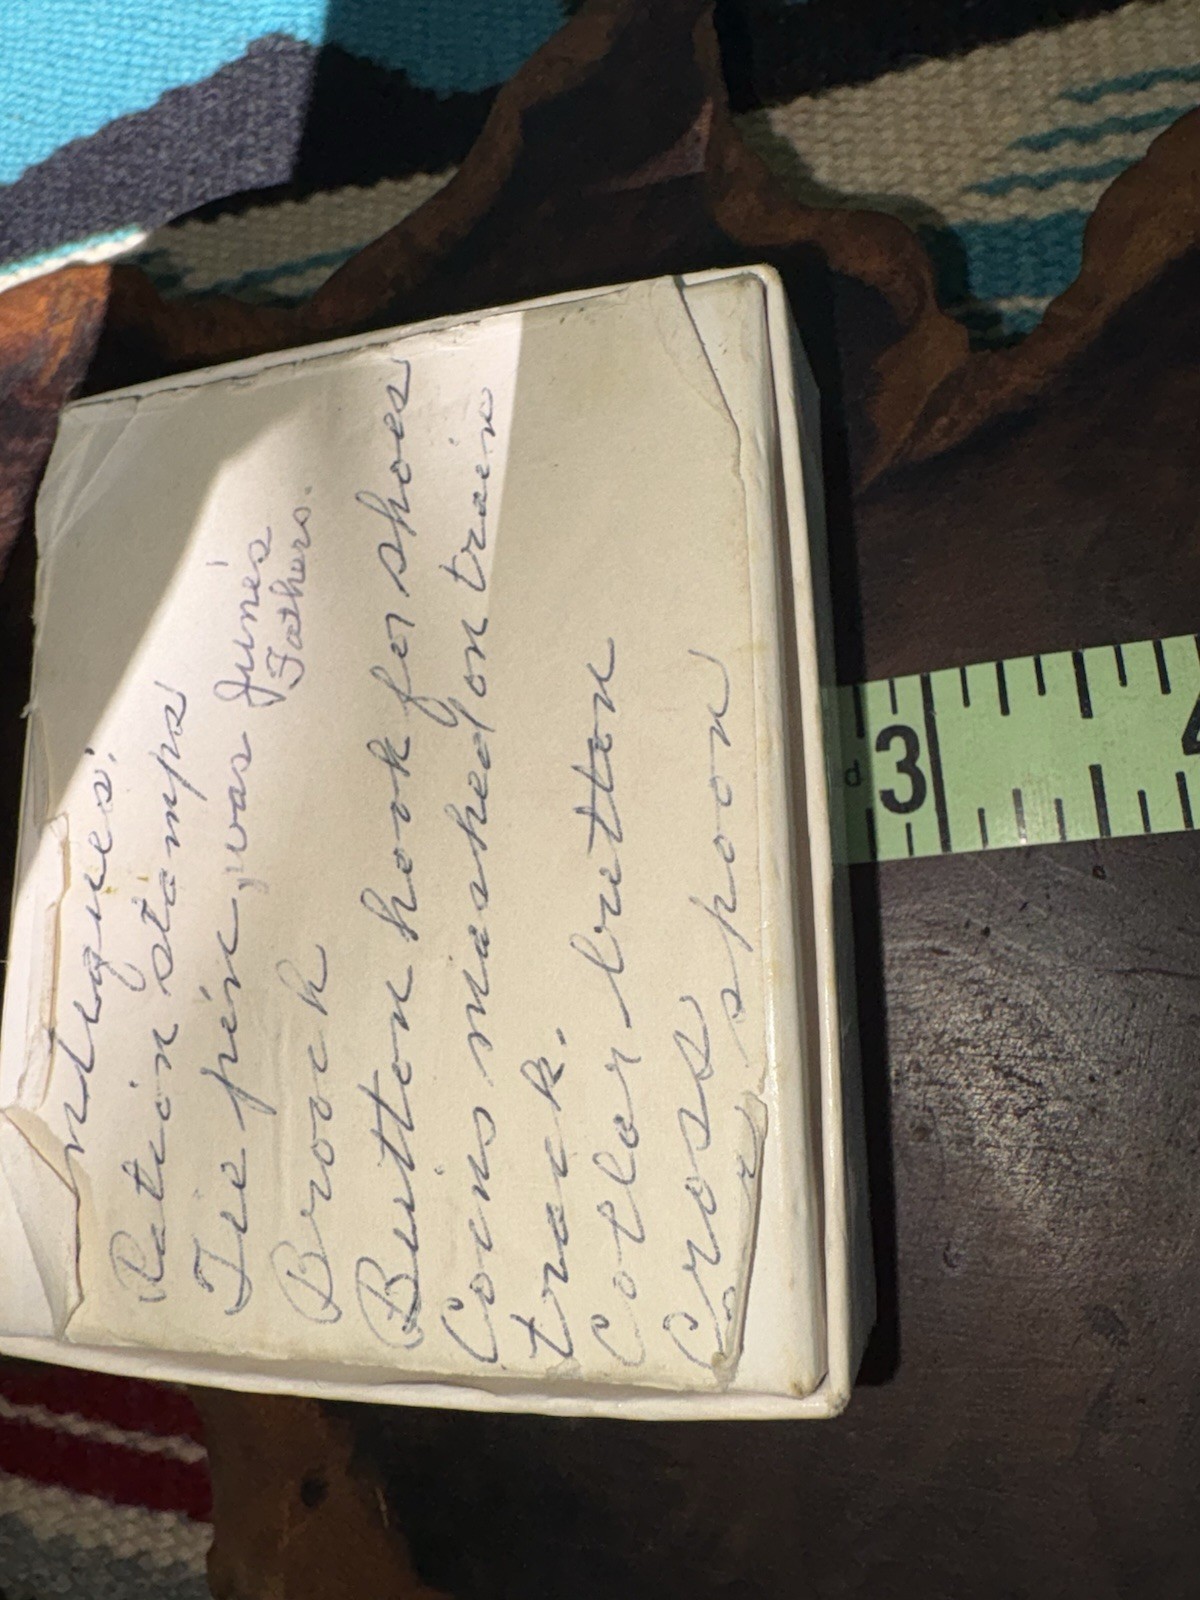 ntiques:
Ration stamps
Tie pin, was June's
Fathers.
Brooch
Button hook for shoes
Coins mashed on train
track.
Collar button
Cross
spoon
3